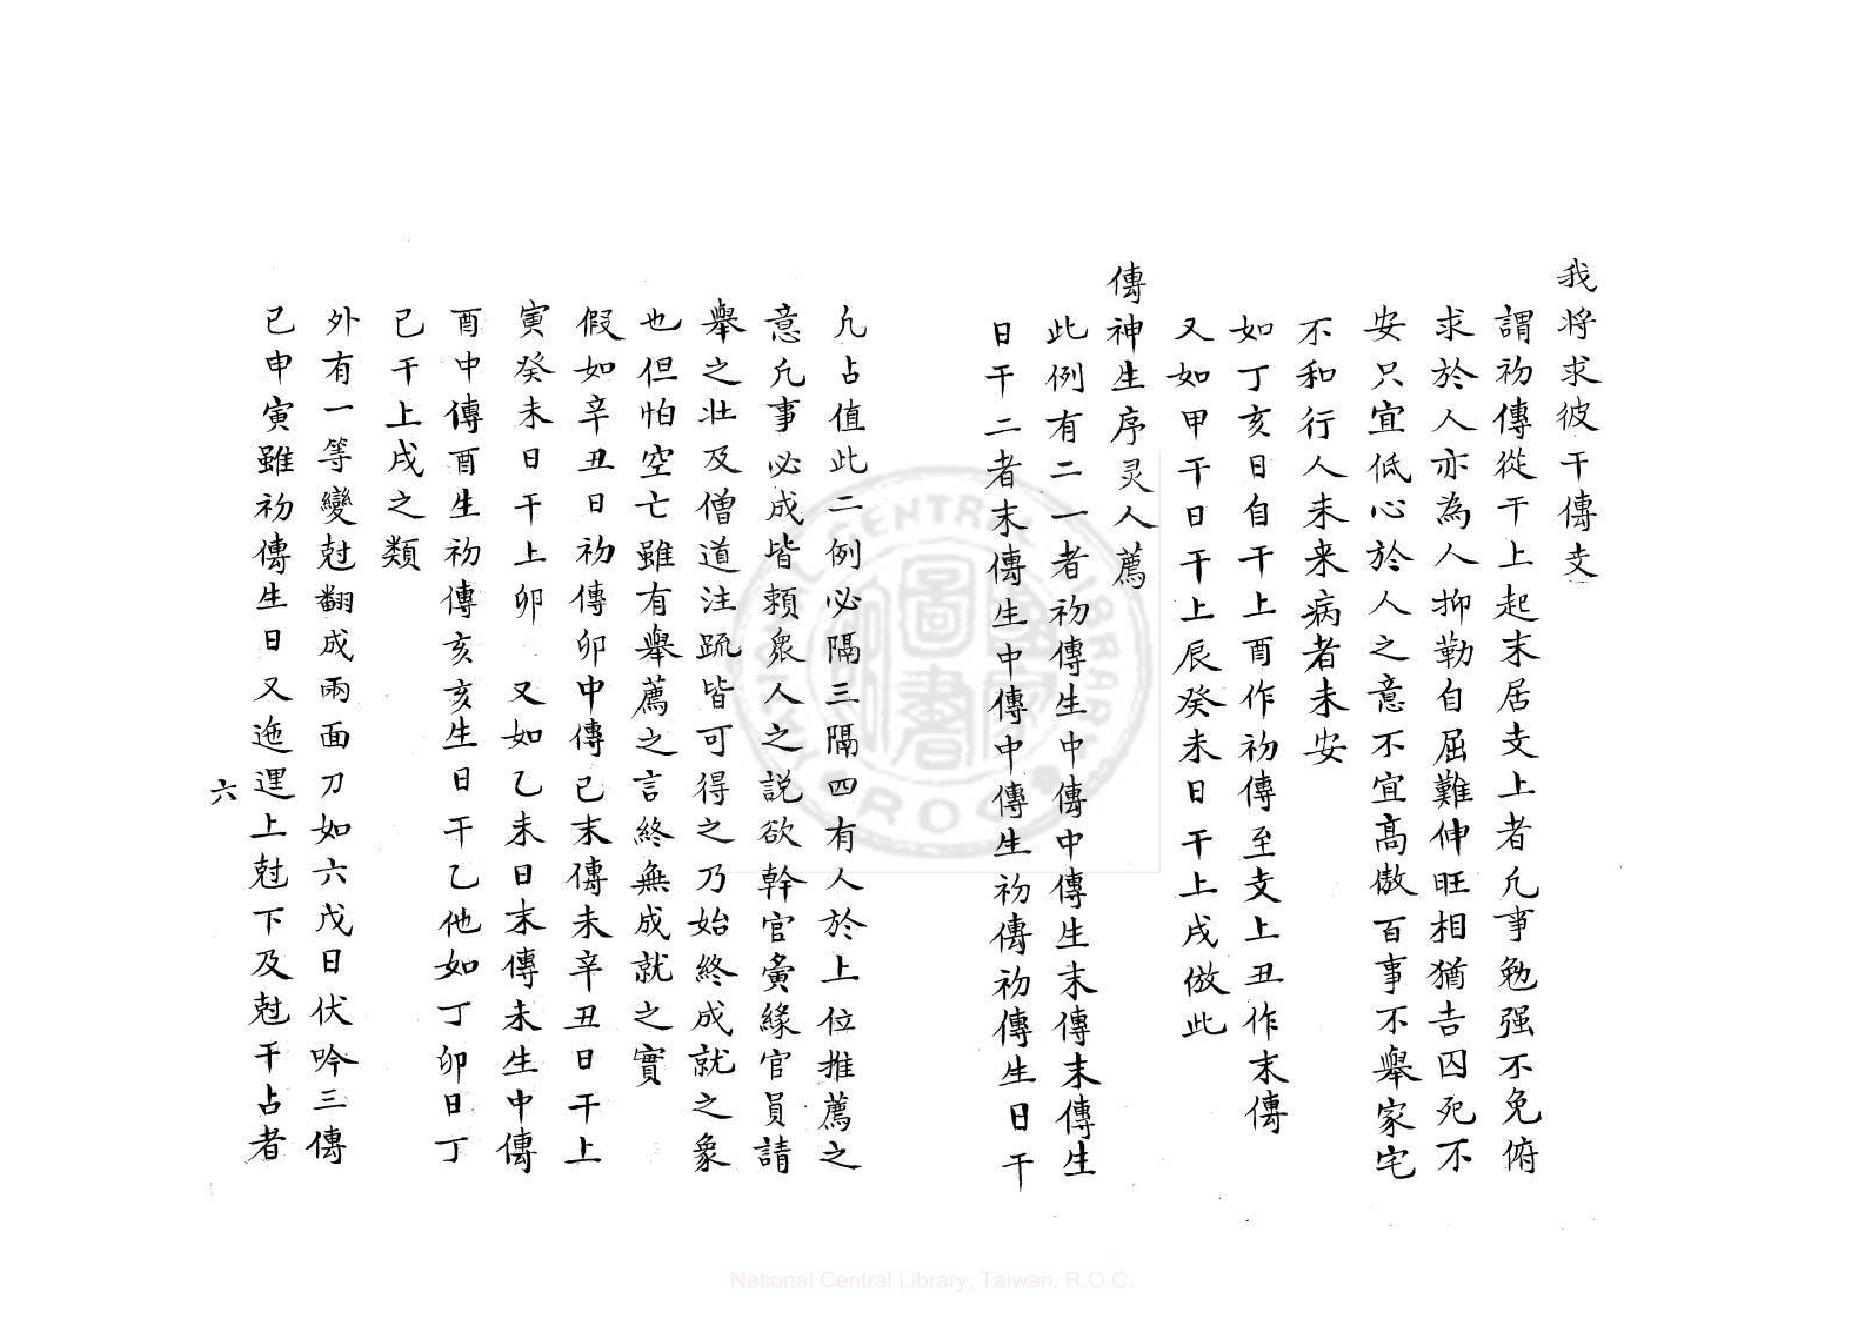 我將求彼干傳支
謂初傳從干上起末居支上者凢事勉强不免俯
求於人亦為人抑勒自屈難伸旺相猶吉囚死不
安只宜低心於人之意不宜髙傲百事不舉家宅
不和行人未来病者未安
如丁亥日自干上酉作初傳至支上丑作末傳
又如甲干日干上辰癸未日干上戌倣此
傳神生序灵人薦
此例有二一者初傳生中傳中傳生末傳末傳生
日干二者末傳生中傳中傳生初傳初傳生日干
凢占值此二例必隔三隔四有人於上位推薦之
意凢事必成皆頼衆人之説欲幹官夤緣官員請
舉之壮及僧道注䟽皆可得之乃始終成就之象
也但怕空亡雖有舉薦之言終無成就之實
假如辛丑日初傳卯中傳已末傳未辛丑日干上
寅癸未日干上卯 又如乙未日末傳未生中傳
酉中傳酉生初傳亥亥生日干乙他如丁卯日丁
已干上戌之類
外有一等變尅翻成兩面刀如六戊日伏吟三傳
已申寅雖初傳生日又迤逕上尅下及尅干占者
六
National Central Library, Taiwan, R.O.C.